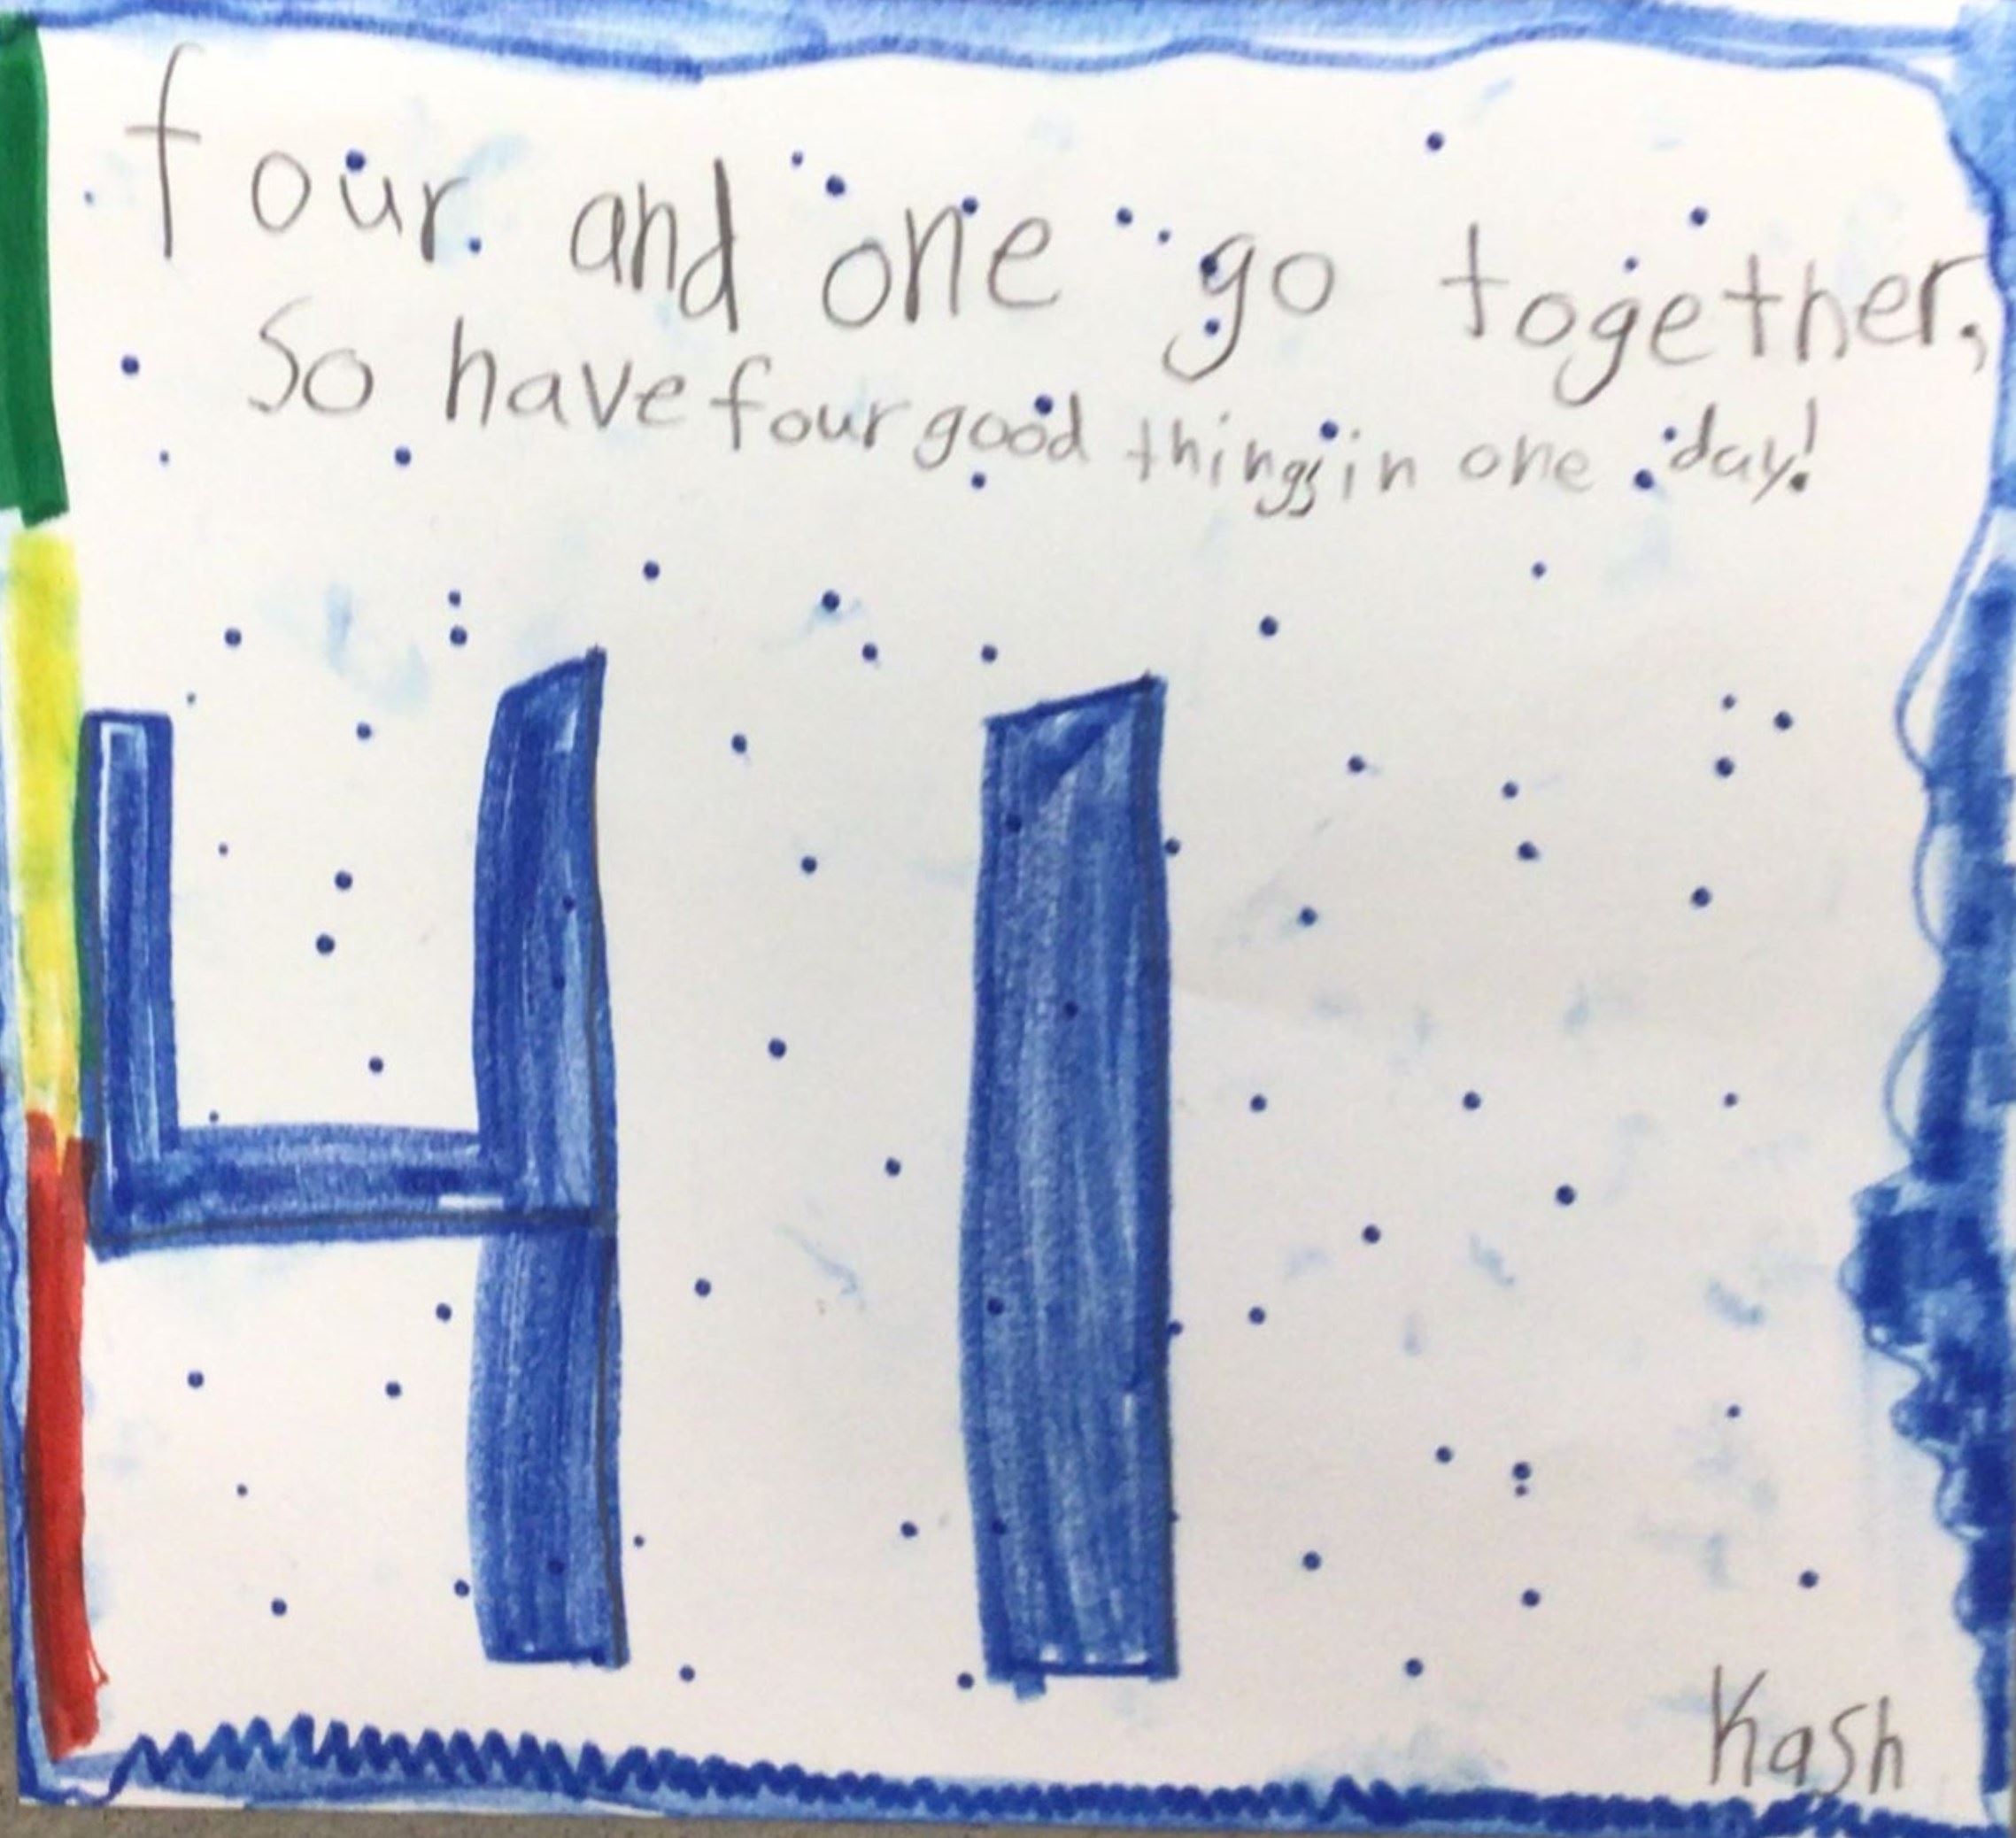 four and one go together,
So have four good things in one day!
41
Kash